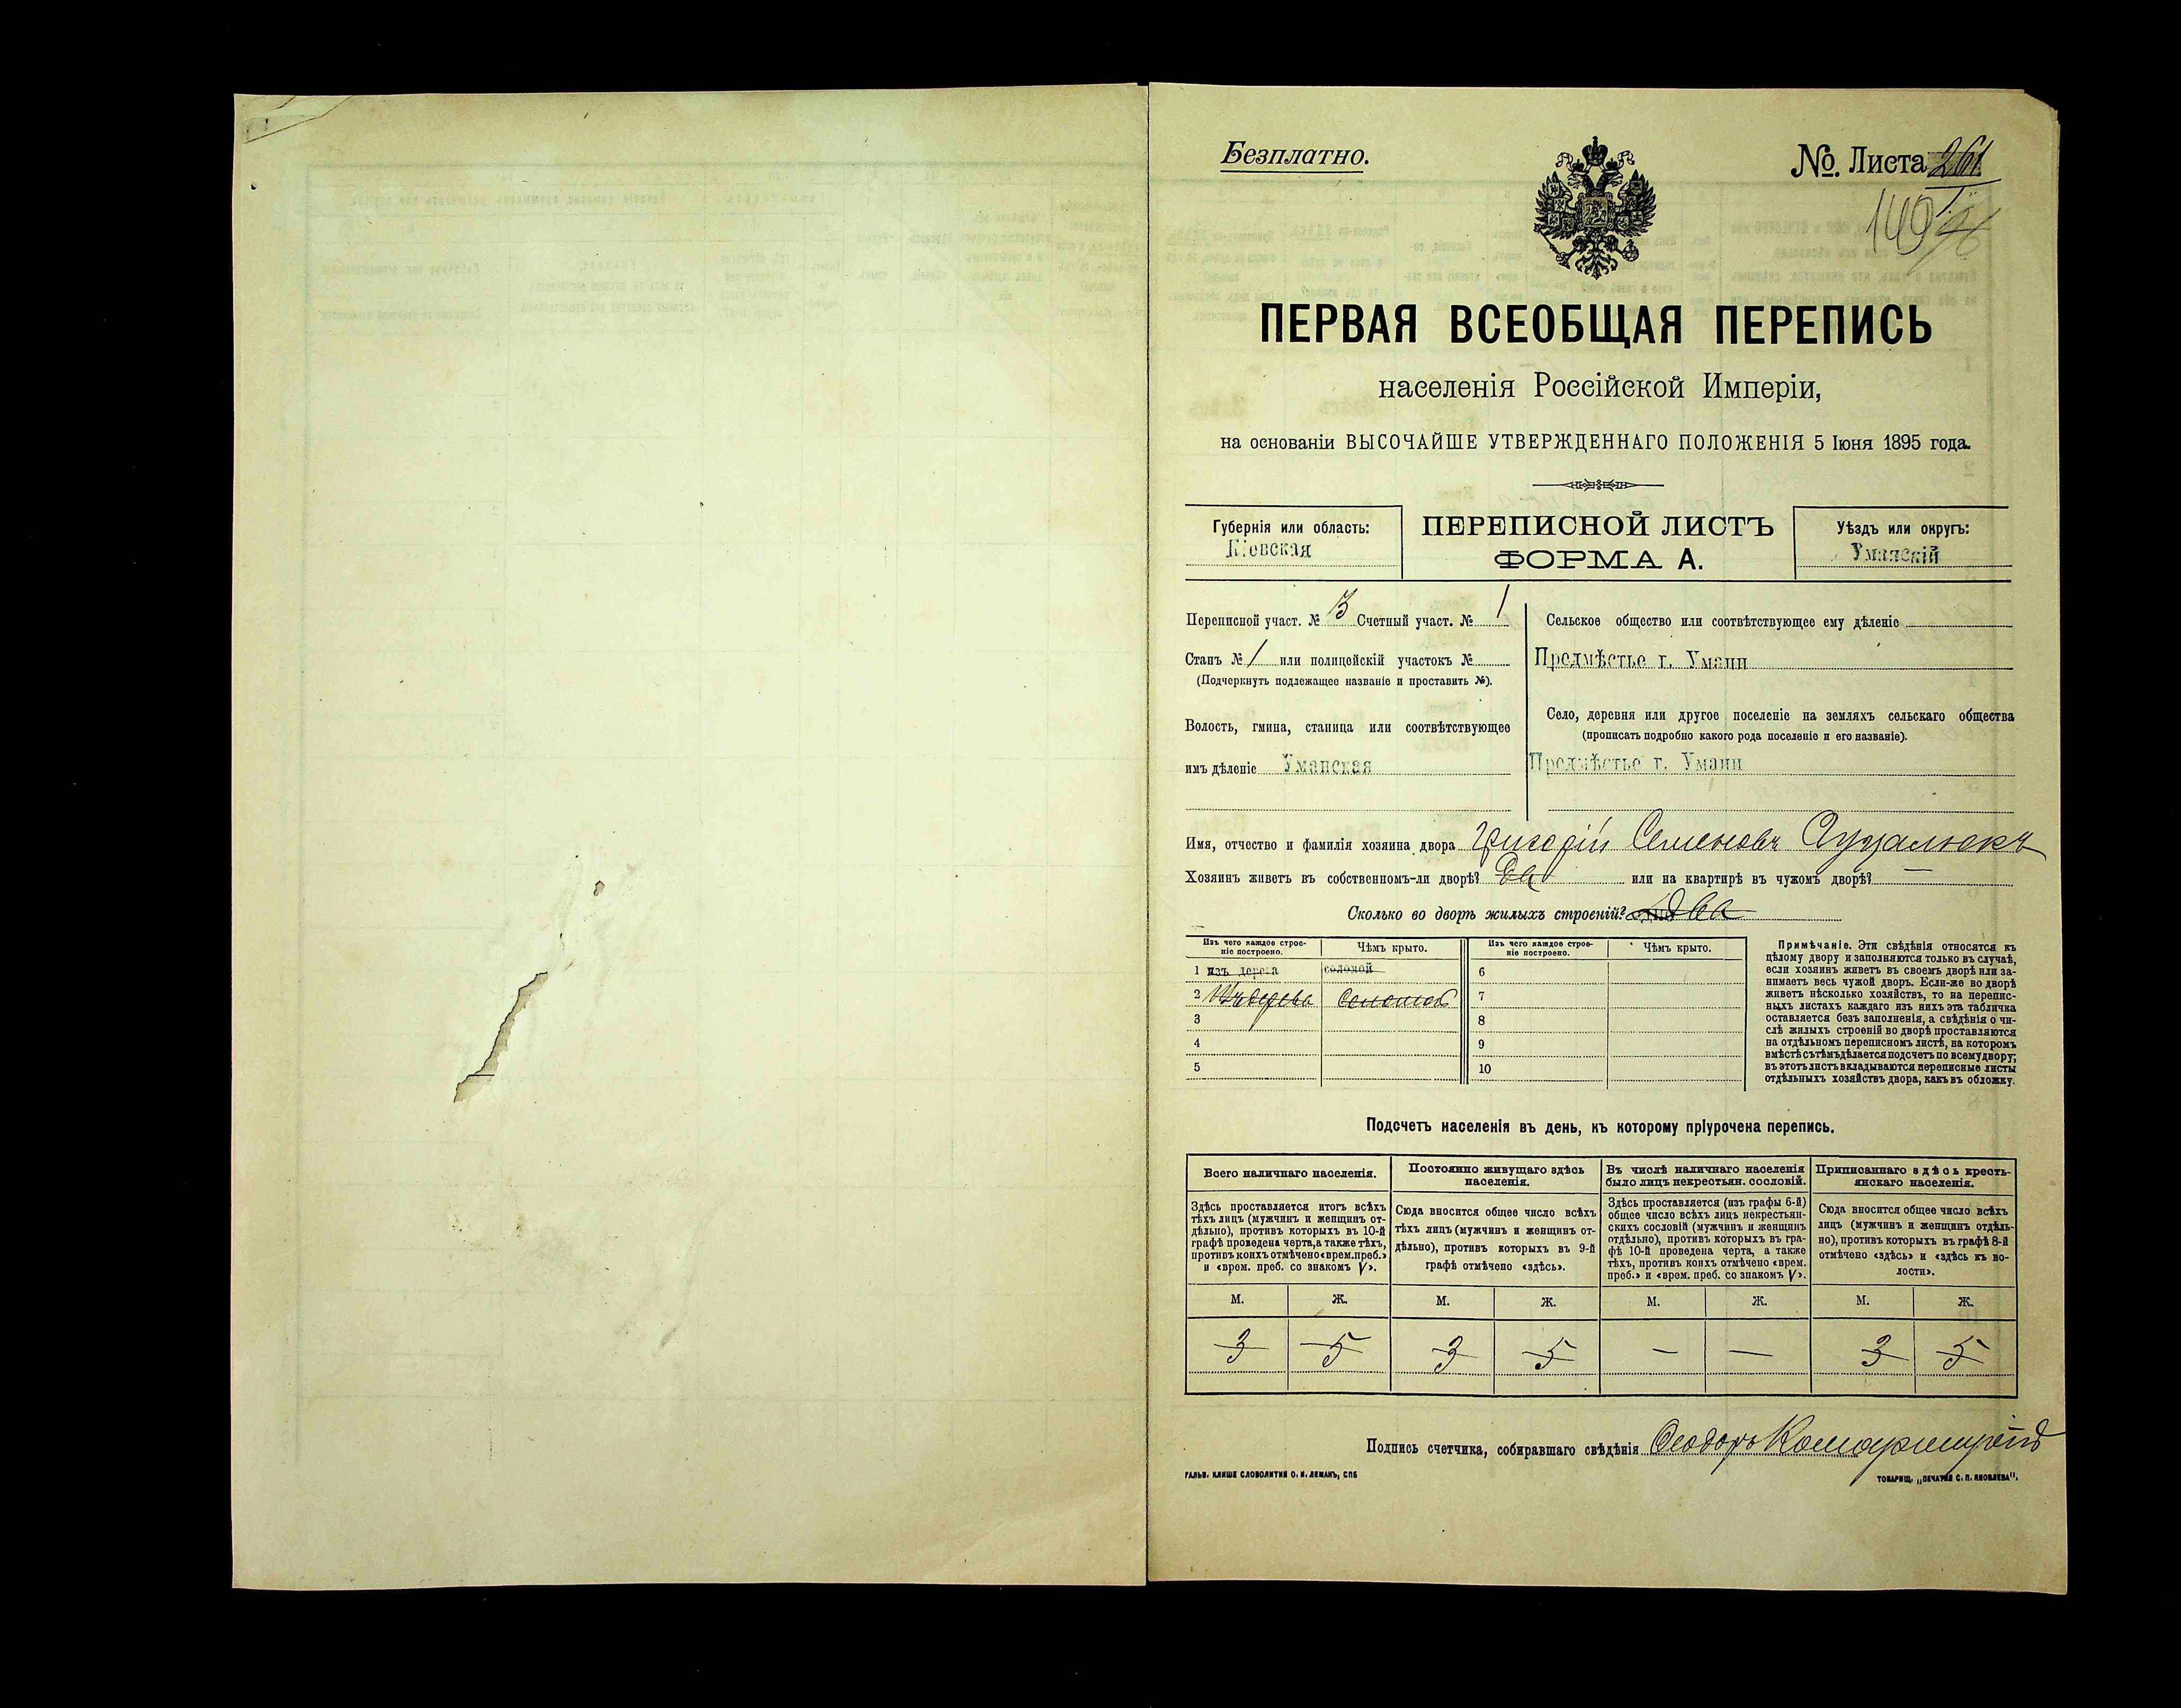 Безплатно.
№ Листа 261
ПЕРВАЯ ВСЕОБЩАЯ ПЕРЕПИСЬ
населенія Россійской Имперіи,
на основаніи ВЫСОЧАЙШЕ УТВЕРЖДЕННАГО ПОЛОЖЕНІЯ 5 Іюня 1895 года.
Губернія или область:
Кіевская
ПЕРЕПИСНОЙ ЛИСТЪ
ФОРМА А.
Уѣздъ или округъ:
Уманскій
Переписной участ. № 3 Счетный участ. № 1
Станъ № 1 или полицейскій участокъ №
(Подчеркнуть подлежащее названіе и проставить №).
Волость, гмина, станица или соотвѣтствующее
имъ дѣленіе Уманская
Сельское общество или соотвѣтствующее ему дѣленіе
Предмѣстье г. Умани
Село, деревня или другое поселеніе на земляхъ сельскаго общества
(прописать подробно какого рода поселеніе и его названіе).
Предмѣстье г. Умани
Имя, отчество и фамилія хозяина двора Григорій Семеновъ
Хозяинъ живетъ въ собственномъ-ли дворѣ? Да или на квартирѣ въ чужомъ дворѣ? —
Сколько во дворѣ жилыхъ строеній? два
Изъ чего каждое строе-
ніе построено.
Чѣмъ крыто.
1 изъ дерева соломой
2 Изъ дерева Соломой
3
4
5
Изъ чего каждое строе-
ніе построено.
Чѣмъ крыто.
6
7
8
9
10
Примѣчаніе. Эти свѣдѣнія относятся къ
цѣлому двору и заполняются только въ случаѣ,
если хозяинъ живетъ въ своемъ дворѣ или за-
нимаетъ весь чужой дворъ. Если-же во дворѣ
живетъ нѣсколько хозяйствъ, то на перепис-
ныхъ листахъ каждаго изъ нихъ эта табличка
оставляется безъ заполненія, а свѣдѣнія о чи-
слѣ жилыхъ строеній во дворѣ проставляются
на отдѣльномъ переписномъ листѣ, на которомъ
вмѣстѣ съ тѣмъ дѣлается подсчетъ по всему двору;
въ этотъ листъ вкладываются переписные листы
отдѣльныхъ хозяйствъ двора, какъ въ обложку.
Подсчетъ населенія въ день, къ которому пріурочена перепись.
Всего наличнаго населенія.
Здѣсь проставляется итогъ всѣхъ
тѣхъ лицъ (мужчинъ и женщинъ от-
дѣльно), противъ которыхъ въ 10-й
графѣ проведена черта, а также тѣхъ,
противъ коихъ отмѣчено «врем. преб.»
и «врем. преб. со знакомъ V».
Постоянно живущаго здѣсь
населенія.
Сюда вносится общее число всѣхъ
тѣхъ лицъ (мужчинъ и женщинъ от-
дѣльно), противъ которыхъ въ 9-й
графѣ отмѣчено «здѣсь».
Въ числѣ наличнаго населенія
было лицъ некрестьян. сословій.
Здѣсь проставляется (изъ графы 6-й)
общее число всѣхъ лицъ некрестьян-
скихъ сословій (мужчинъ и женщинъ
отдѣльно), противъ которыхъ въ гра-
фѣ 10-й проведена черта, а также
тѣхъ, противъ коихъ отмѣчено «врем.
преб.» и «врем. преб. со знакомъ V».
Приписаннаго здѣсь кресть-
янскаго населенія.
Сюда вносится общее число всѣхъ
лицъ (мужчинъ и женщинъ отдѣль-
но), противъ которыхъ въ графѣ 8-й
отмѣчено «здѣсь» и «здѣсь къ во-
лости».
М. Ж. М. Ж. М. Ж. М. Ж.
3 5 3 5 — — 3 5
Подпись счетчика, собиравшаго свѣдѣнія Ѳеодоръ
ГАЛЬВ. КЛИШЕ СЛОВОЛИТНИ О. И. ЛЕМАНЪ, СПБ
ТОВАРИЩ. „ПЕЧАТНЯ С. П. ЯКОВЛЕВА".